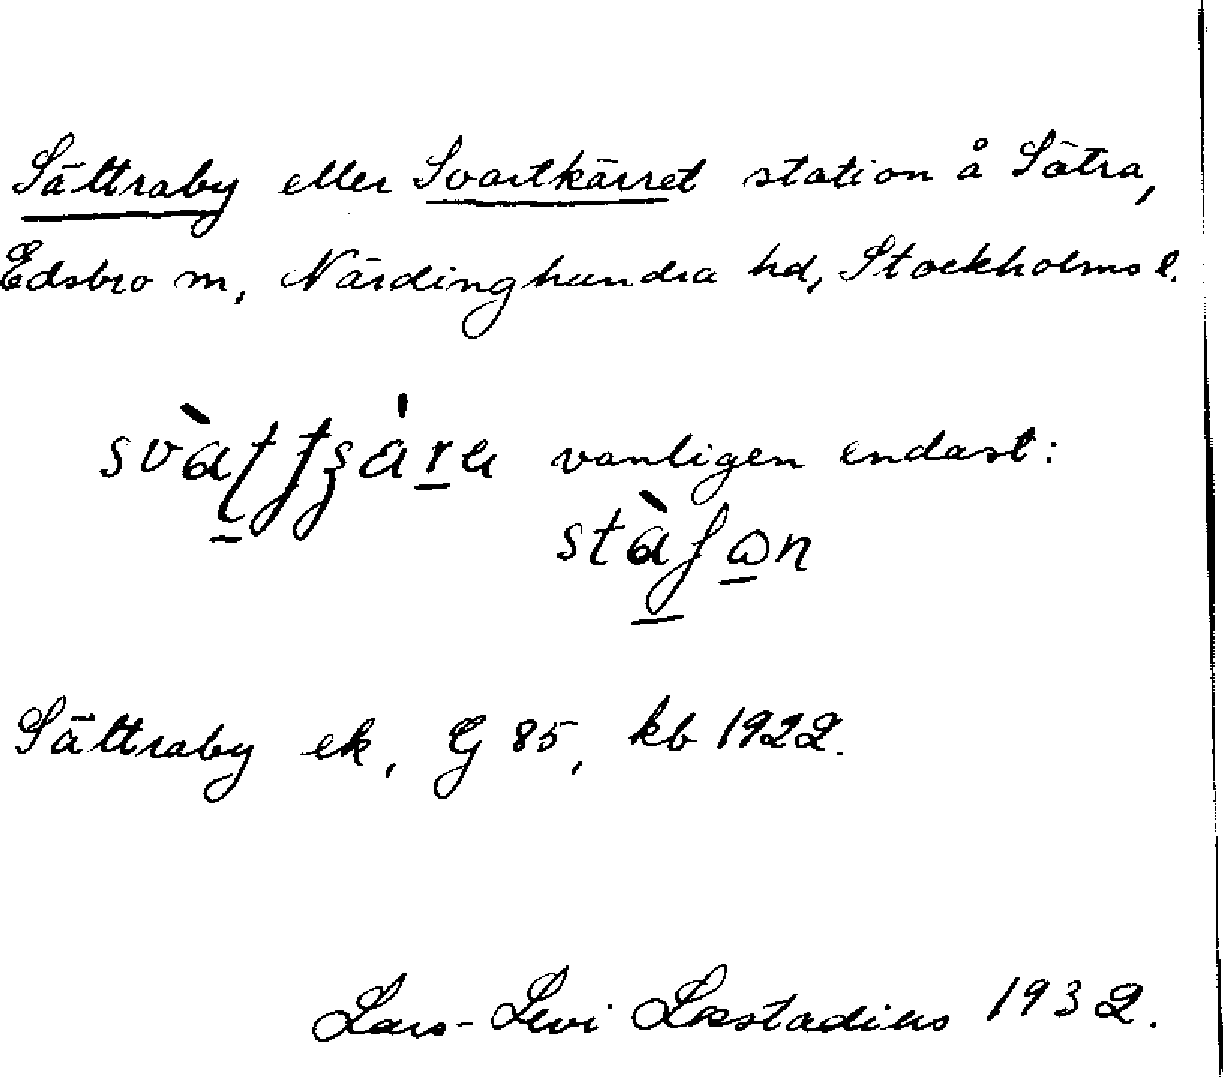 Sättraby eller Svartkärret station å Sätra,
Edsbro sn, Närdinghundra hd, Stockholms l.
vanligen endast:
Sättraby ek, G 85, kb 1922.
Lars-Levi Læstadius 1932.